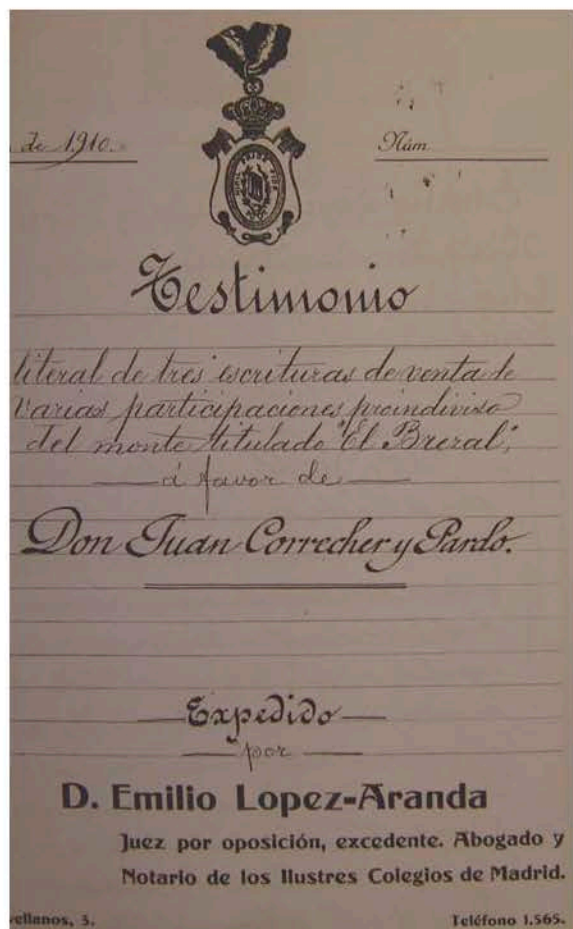 de 1910.
Núm
Testimonio
literal de tres escrituras de venta de
varias participaciones proindiviso
del monte titulado "El Brezal",
á favor de
Don Juan Correcher y Pardo.
Expedido
por
D. Emilio Lopez-Aranda
Juez por oposición, excedente. Abogado y
Notario de los Ilustres Colegios de Madrid.
vellanos, 3.
Teléfono 1.565.